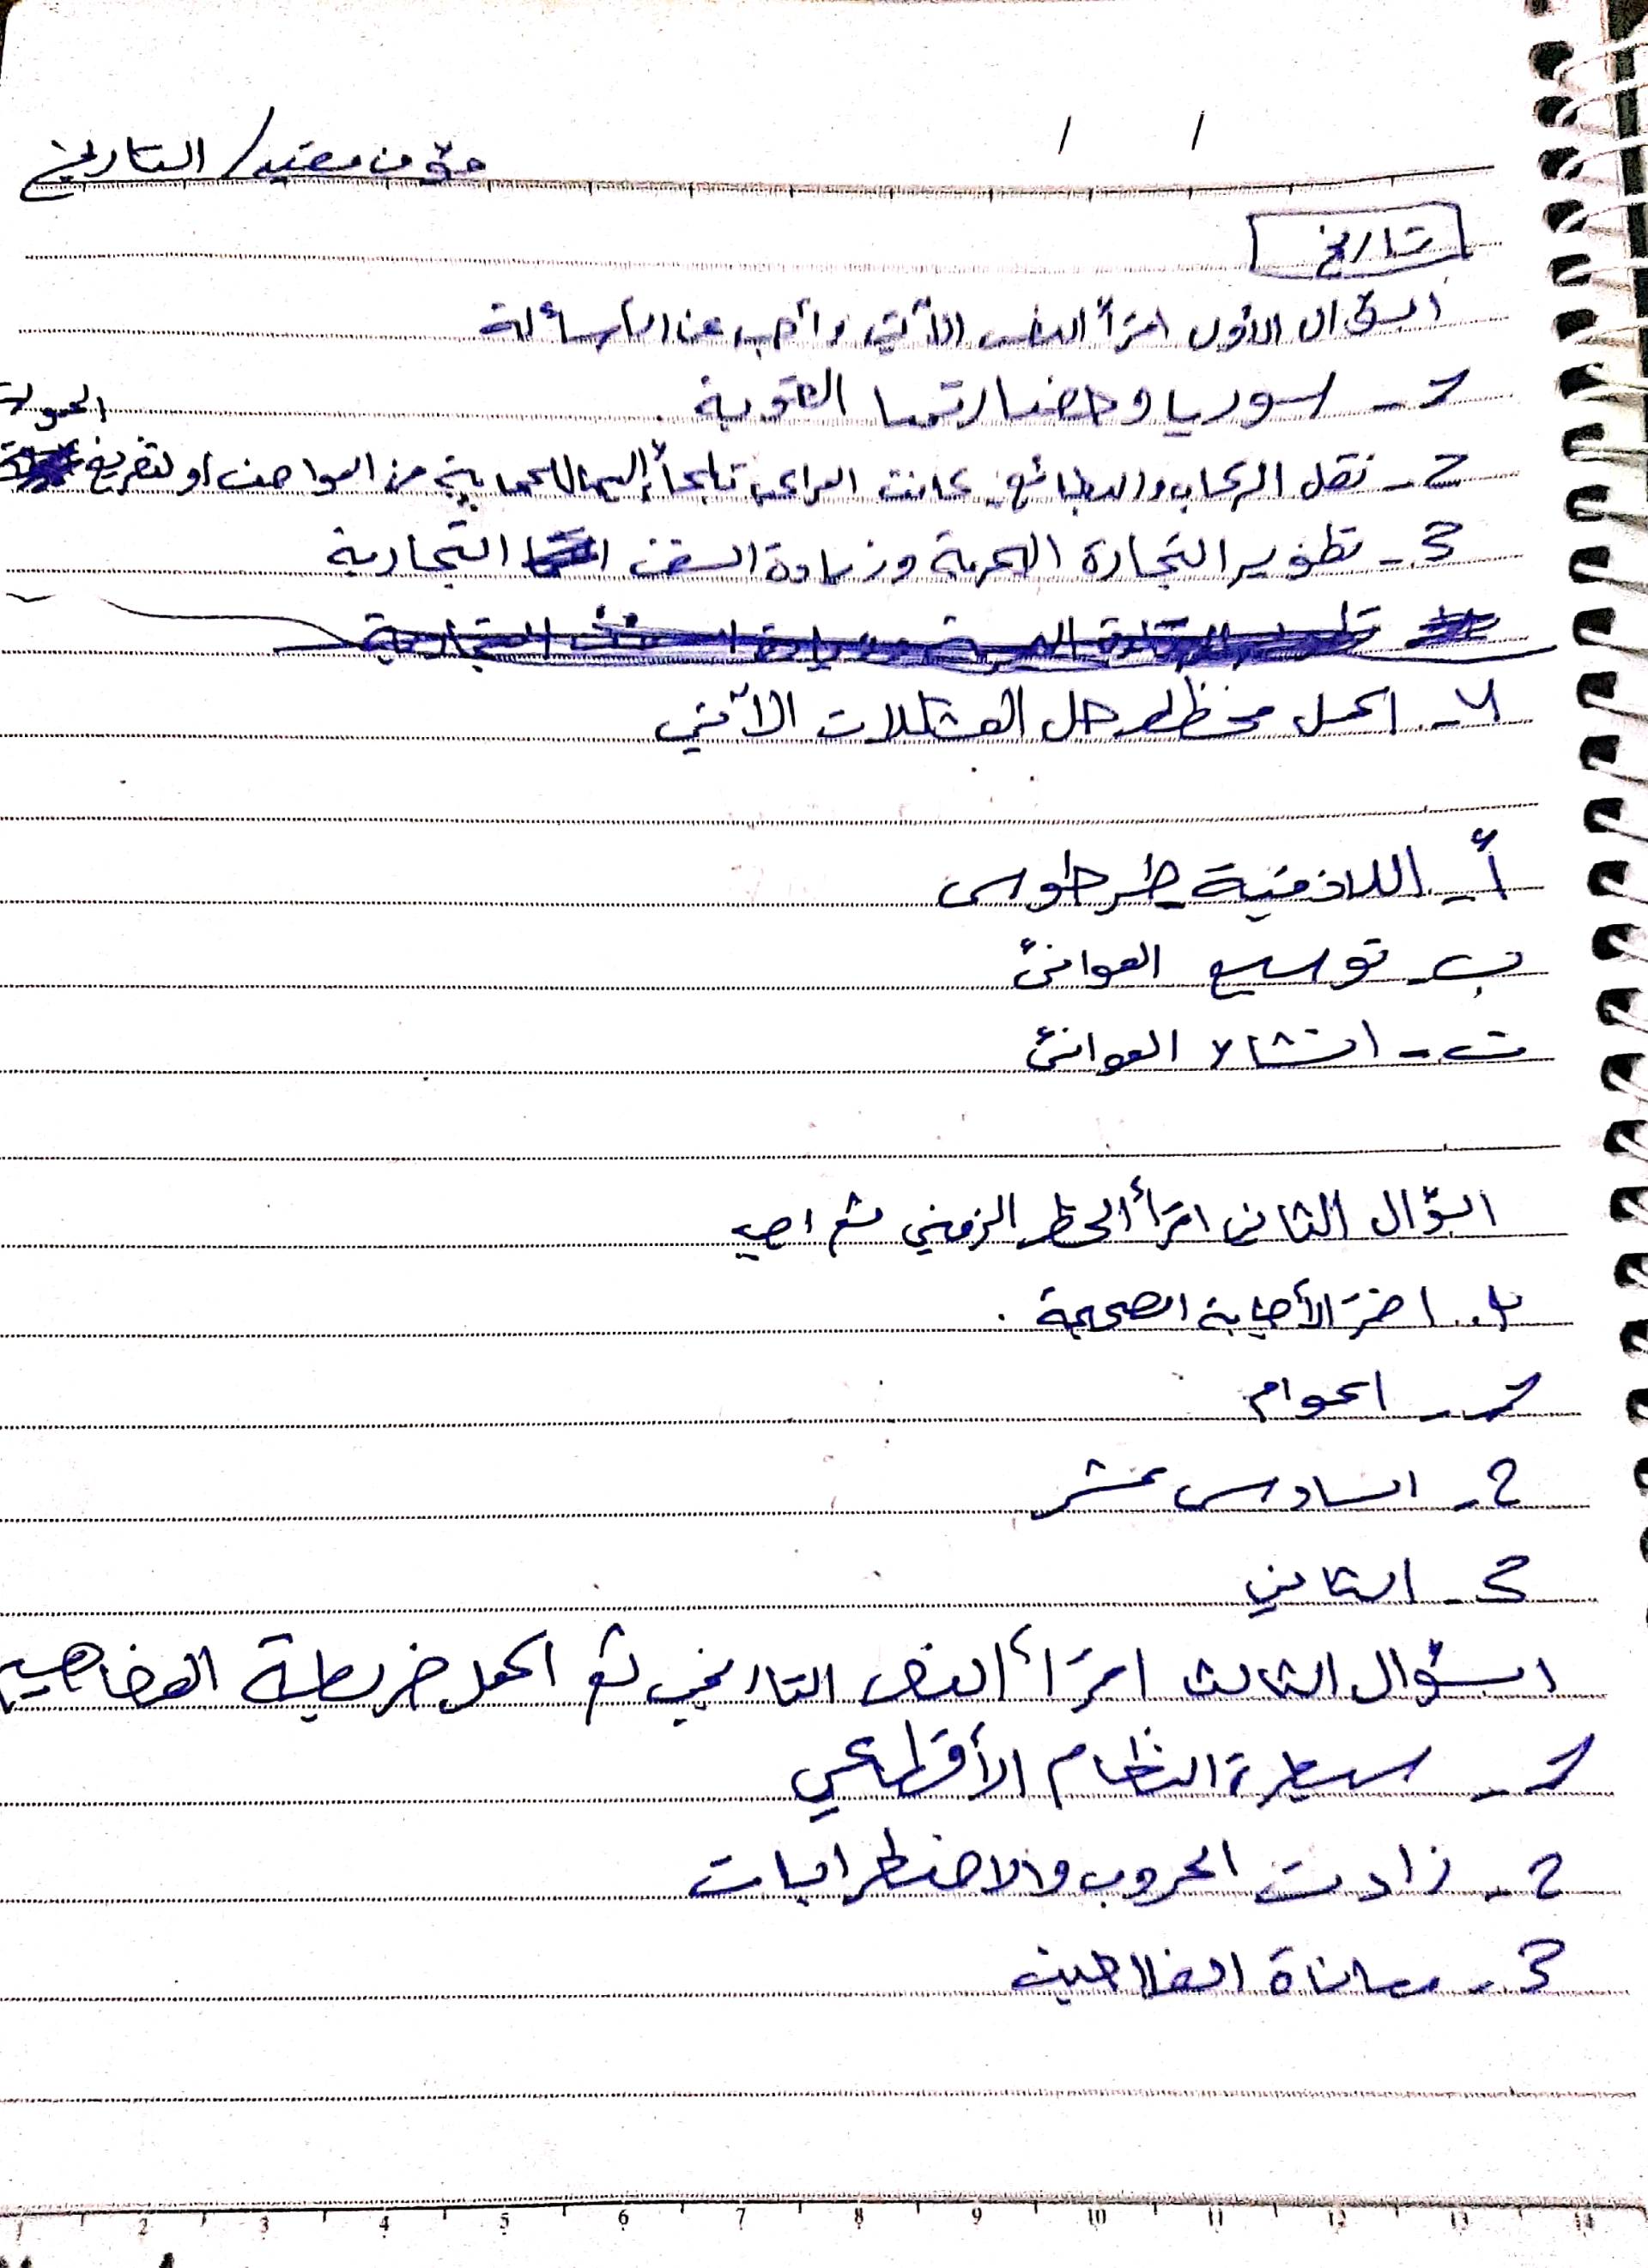 مؤمن مفيد/ التاريخ
/ /
تاريخ
السؤال الاول اقرأ النص الآتي وأجب عن الأسئلة
1- سوريا وحضارتها القديمة.
2- نقل الركاب والبضائع. كانت المراكب تلجأ إليها للحماية من العواصف او لتفريغ الحمولة
3- تطوير التجارة البحرية وزيادة السفن التجارية
4- اكمل مخطط حل المشكلات الآتي
أ- اللاذقية طرطوس
ب- توسيع الموانئ
ت- انشاء الموانئ
السؤال الثاني اقرأ الخط الزمني ثم اجب
1. اختر الأجابة الصحيحة.
1- اعوام
2- السادس عشر
3- الثاني
السؤال الثالث اقرأ النص التاريخي ثم اكمل خريطة المفاهيم
1- سيطرة النظام الأقطاعي
2- زادت الحروب والاضطرابات
3- معاناة الفلاحين
1 2 3 4 5 6 7 8 9 10 11 12 13 14